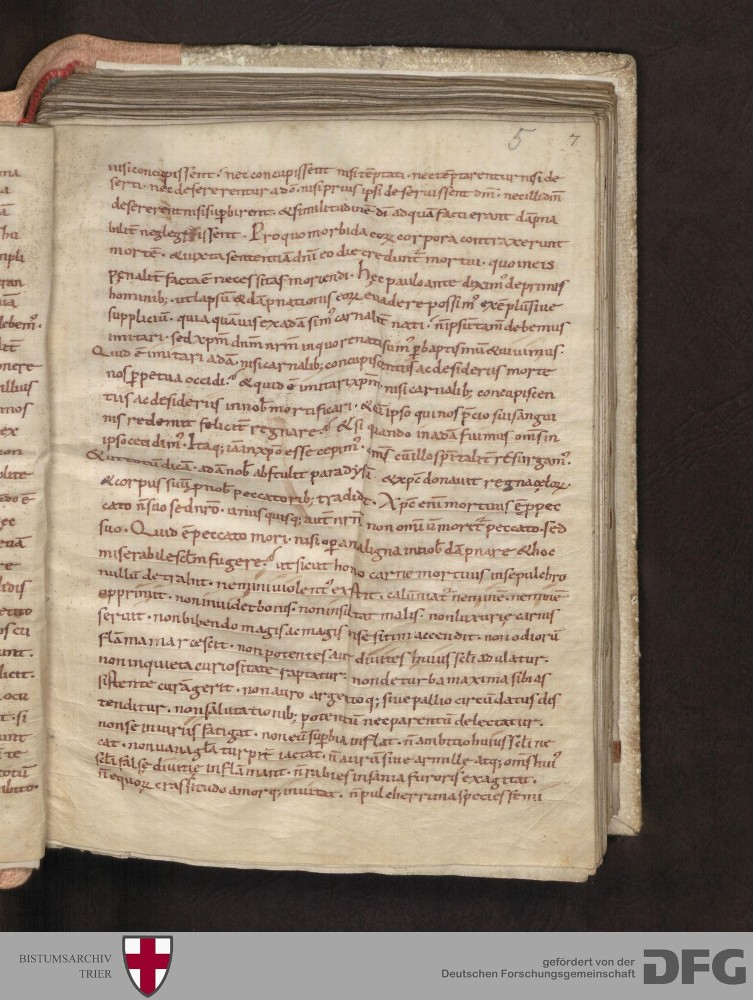 5 7
nisi concupissent. nec concupissent nisi tẽptati. nec tẽptarentur nisi de
serti. nec desererentur a dõ. nisi prius ipsi deseruissent dm̃. nec illi dm̃
desererent nisi supbirent. & similitudinẽ dĩ ad quã facti erant dãpna
bilit̃ neglegissent. Pro quo morbida eoꝝ corpora contraxerunt
mortẽ. & iuxta sententiã dnĩ eo die credunt̃ mortui. quo in eis
penalit̃ facta ẽ necessitas moriendi. Hęc paulo ante dixim; de primis
hominib; ut lapsũ & dãpnationis eoꝝ euadere possim; exẽplũ siue
suppliciũ. quia quãuis ex adã sim; carnalit̃ nati. ñ ipsũ tam̃ debemus
imitari. sed xp̃m dnm̃ nrm̃ in quo renati sum; p baptismũ & uiuimus.
Quid ẽ imitari adã. nisi carnalib; concupiscentiis ac desideriis morte
nos ppetua occidi? & quid ẽ imitari xp̃m. nisi carnalib; concupiscen
tiis ac desideriis in nob̃ mortificari. & cũ ipso qui nos p̃cio sui sangui
nis redemit felicit̃ regnare? & si quando in adã fuimus om̃s in
ipso cecidim;. Itaq; iã in xp̃o esse cepim; om̃s cũ illo sp̃italit̃ resurgam;.
& ut totũ dicã. adã nob̃ abstulit paradysũ. & xp̃c donauit regna cęloꝝ.
& corpus suũ p nob̃ peccatorib; tradidit. Xp̃c enĩ mortuus ẽ pp pec
cato ñ suo sed nr̃o. unus quisq; aut̃ nr̃m̃ non om̃i ũ morit̃ peccato. sed
suo. Quid ẽ peccato mori. nisi opa maligna in nob̃ dãpnare & hoc
miserabile sclm̃ fugere? ut sicut homo carne mortuus in sepulchro
nullũ detrahit. nemini uiolent; existit. calũniat̃ neminẽ. neminẽ
opprimit. non inuidet bonis. non insultat malis. non luxurię carnis
seruit. non bibendo magis ac magis in se sitim accendit. non odiorũ
flãma marcescit. non potentes aut diuites huius scl̃i adulatur.
non inquieta curiositate raptatur. non de turba maxima sibi as
sistente curã gerit. non auro argentoq; siue pallio circũdatus dis
tenditur. non salutationib; potentũ nec parentũ delectatur.
non se iniuriis fatigat. non eũ supbia inflat. ñ ambitio huius scl̃i ne
cat. non uana gla turpit̃ iactat. ñ aurũ siue armillę atq; om̃s hui;
scl̃i falsę diuitię inflãmant. ñ rabies insania furoris exagitat.
ñ equoꝝ crassitudo amorq; inuitat. ñ pulcherrima species femi
BISTUMSARCHIV
TRIER
gefördert von der
Deutschen Forschungsgemeinschaft
DFG